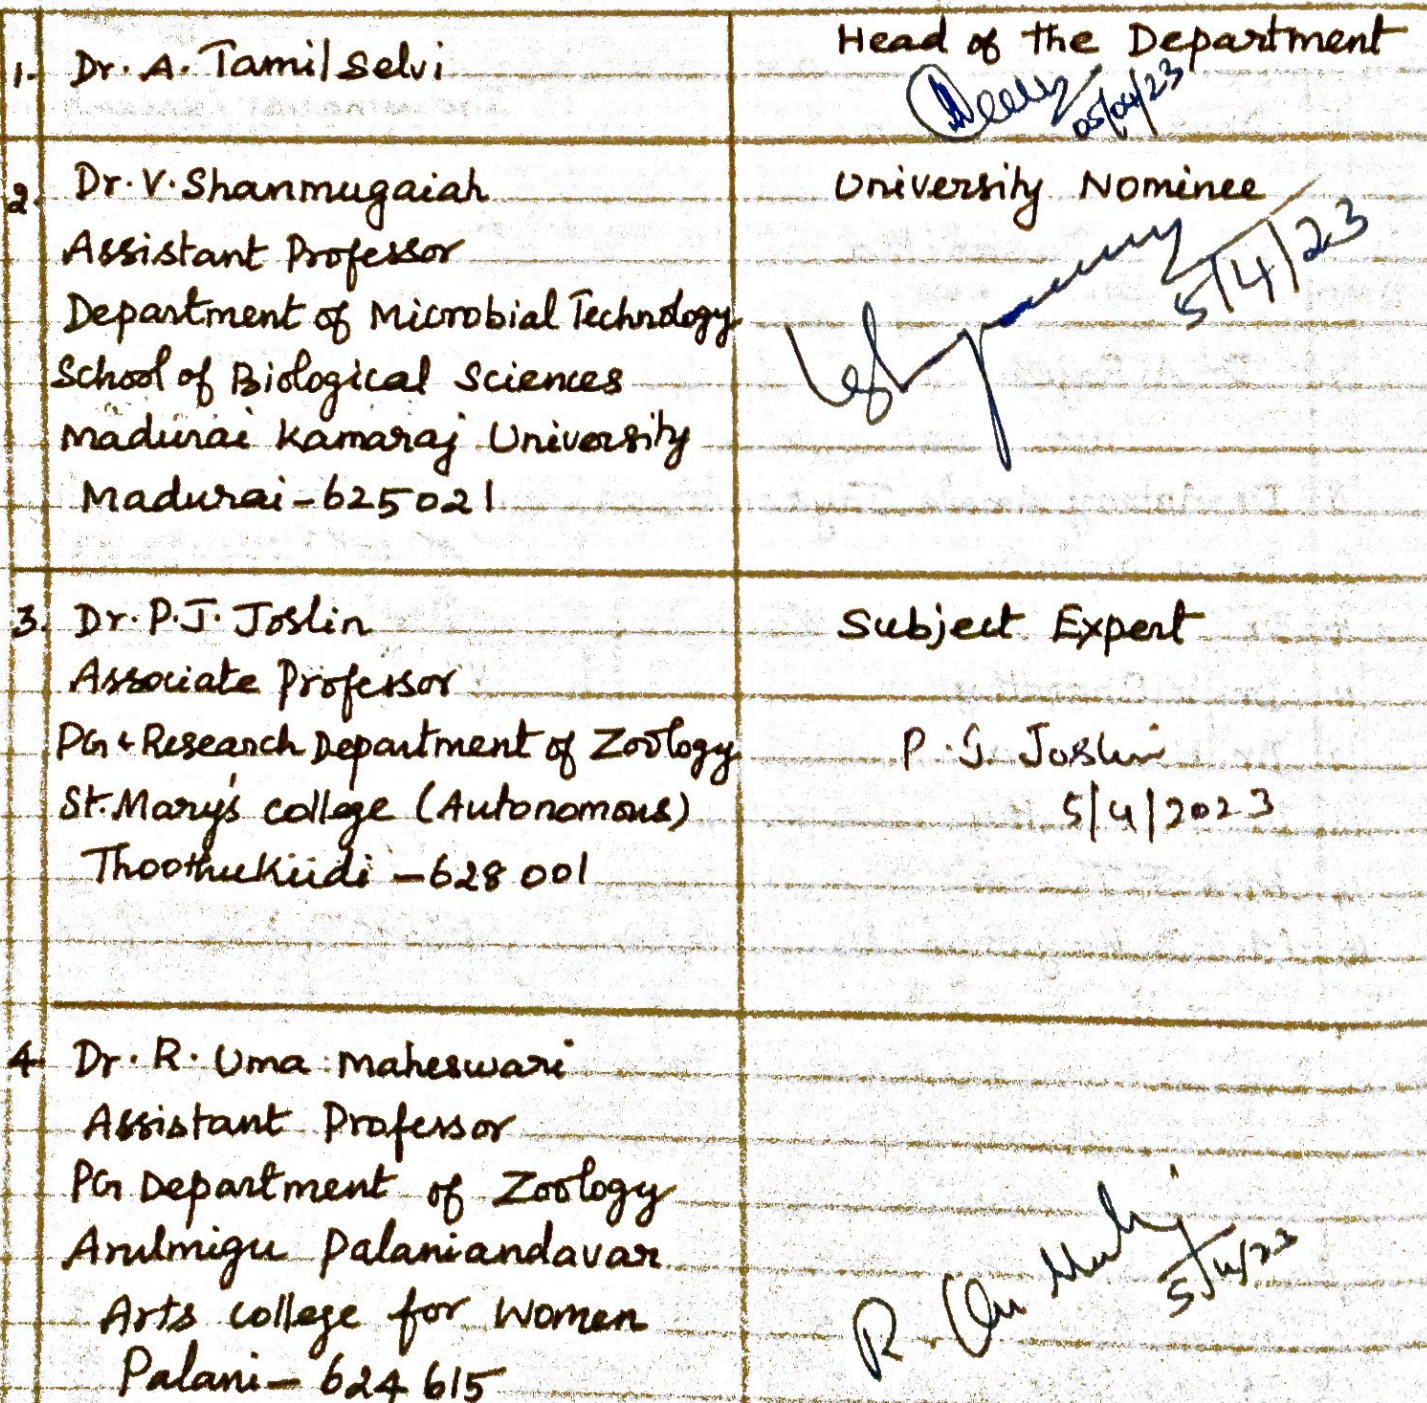 1. Dr. A. Tamil Selvi
Head of the Department
05/04/23
2. Dr. V. Shanmugaiah
Assistant Professor
Department of Microbial Technology
School of Biological Sciences
Madurai Kamaraj University
Madurai - 625021
University Nominee
5/4/23
3. Dr. P.J. Joslin
Associate Professor
PG & Research Department of Zoology
St. Mary's college (Autonomous)
Thoothukudi - 628 001
Subject Expert
P. J. Joslin
5/4/2023
4. Dr. R. Uma Maheswari
Assistant Professor
PG Department of Zoology
Arulmigu Palaniandavar
Arts college for Women
Palani - 624 615
R.
5/4/23